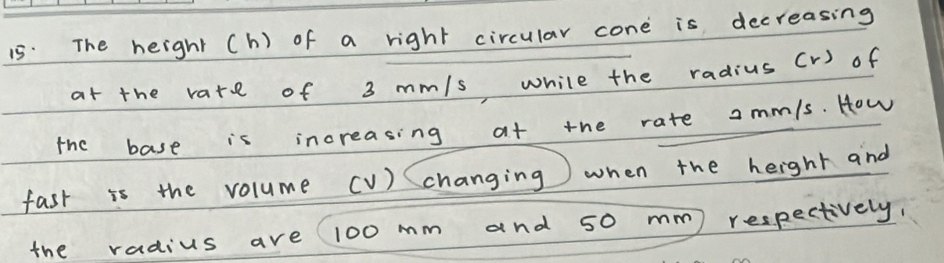 15. The height (h) of a right circular cone is decreasing
at the rate of 3 mm/s, while the radius (r) of
the base is increasing at the rate 2 mm/s. How
fast is the volume (V) changing when the height and
the radius are 100 mm and 50 mm respectively.